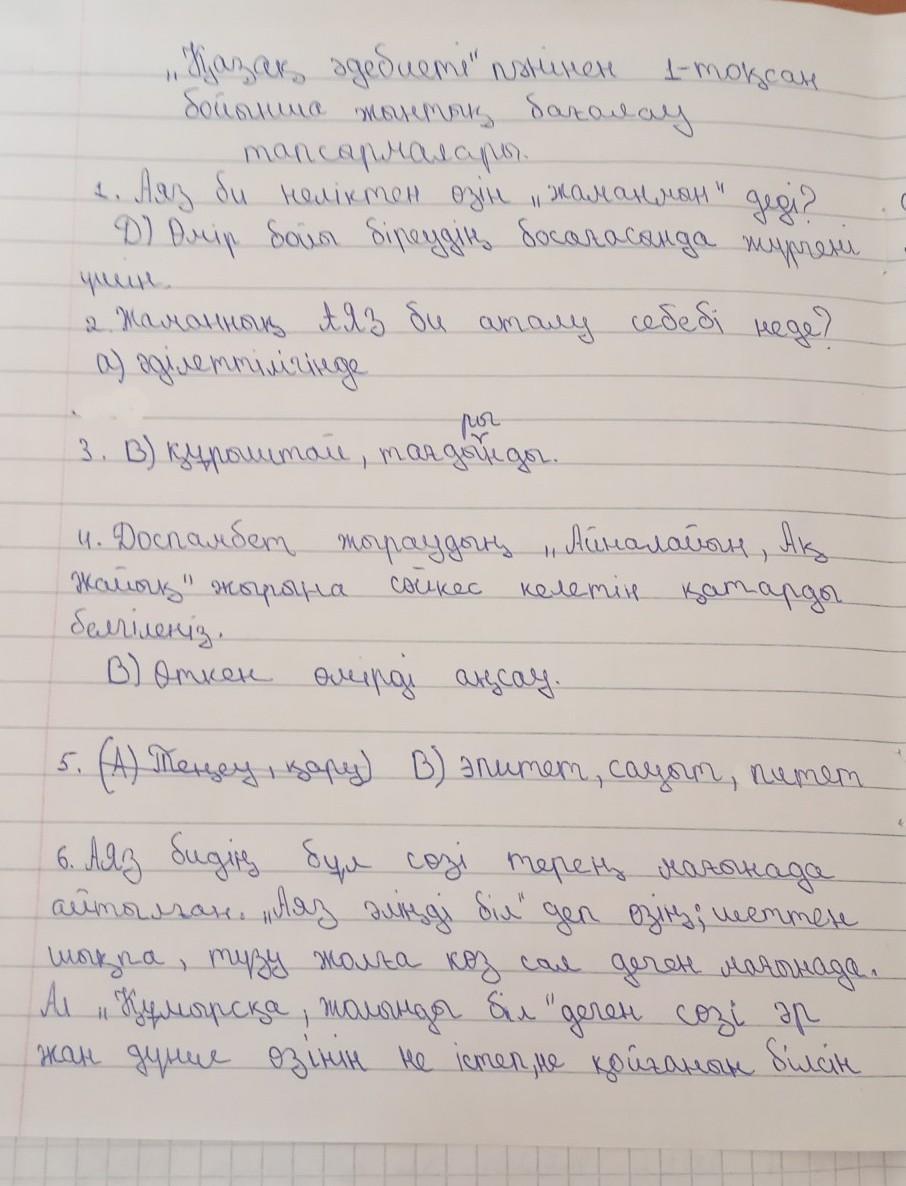 „Қазақ әдебиеті" пәнінен 1-тоқсан
бойынша жиынтық бағалау
тапсырмалары.
1. Аяз би неліктен өзін „жаманмын" деді?
Д) Өмір бойы біреудің босағасында жүргені
үшін.
2. Жаманның Аяз би аталу себебі неде?
а) әділеттілігінде
ры
3. В) құрыштай, таңдыйды.
4. Доспамбет жыраудың „Айналайын, Ақ
Жайық" жырына сәйкес келетін қатарды
белгілеңіз.
В) Өткен өмірді аңсау.
5. (А) Теңеу, қару) В) эпитет, сауыт,
6. Аяз бидің бұл сөзі терең мағынада
айтылған. „Аяз әліңді біл" деп өзің; шеттен
шықпа, түзу жолға көз сал деген мағынада.
Ал „Құмырсқа, жолыңды біл" деген сөзі әр
жан дүние өзінің не істеп, не қойғанын білсін